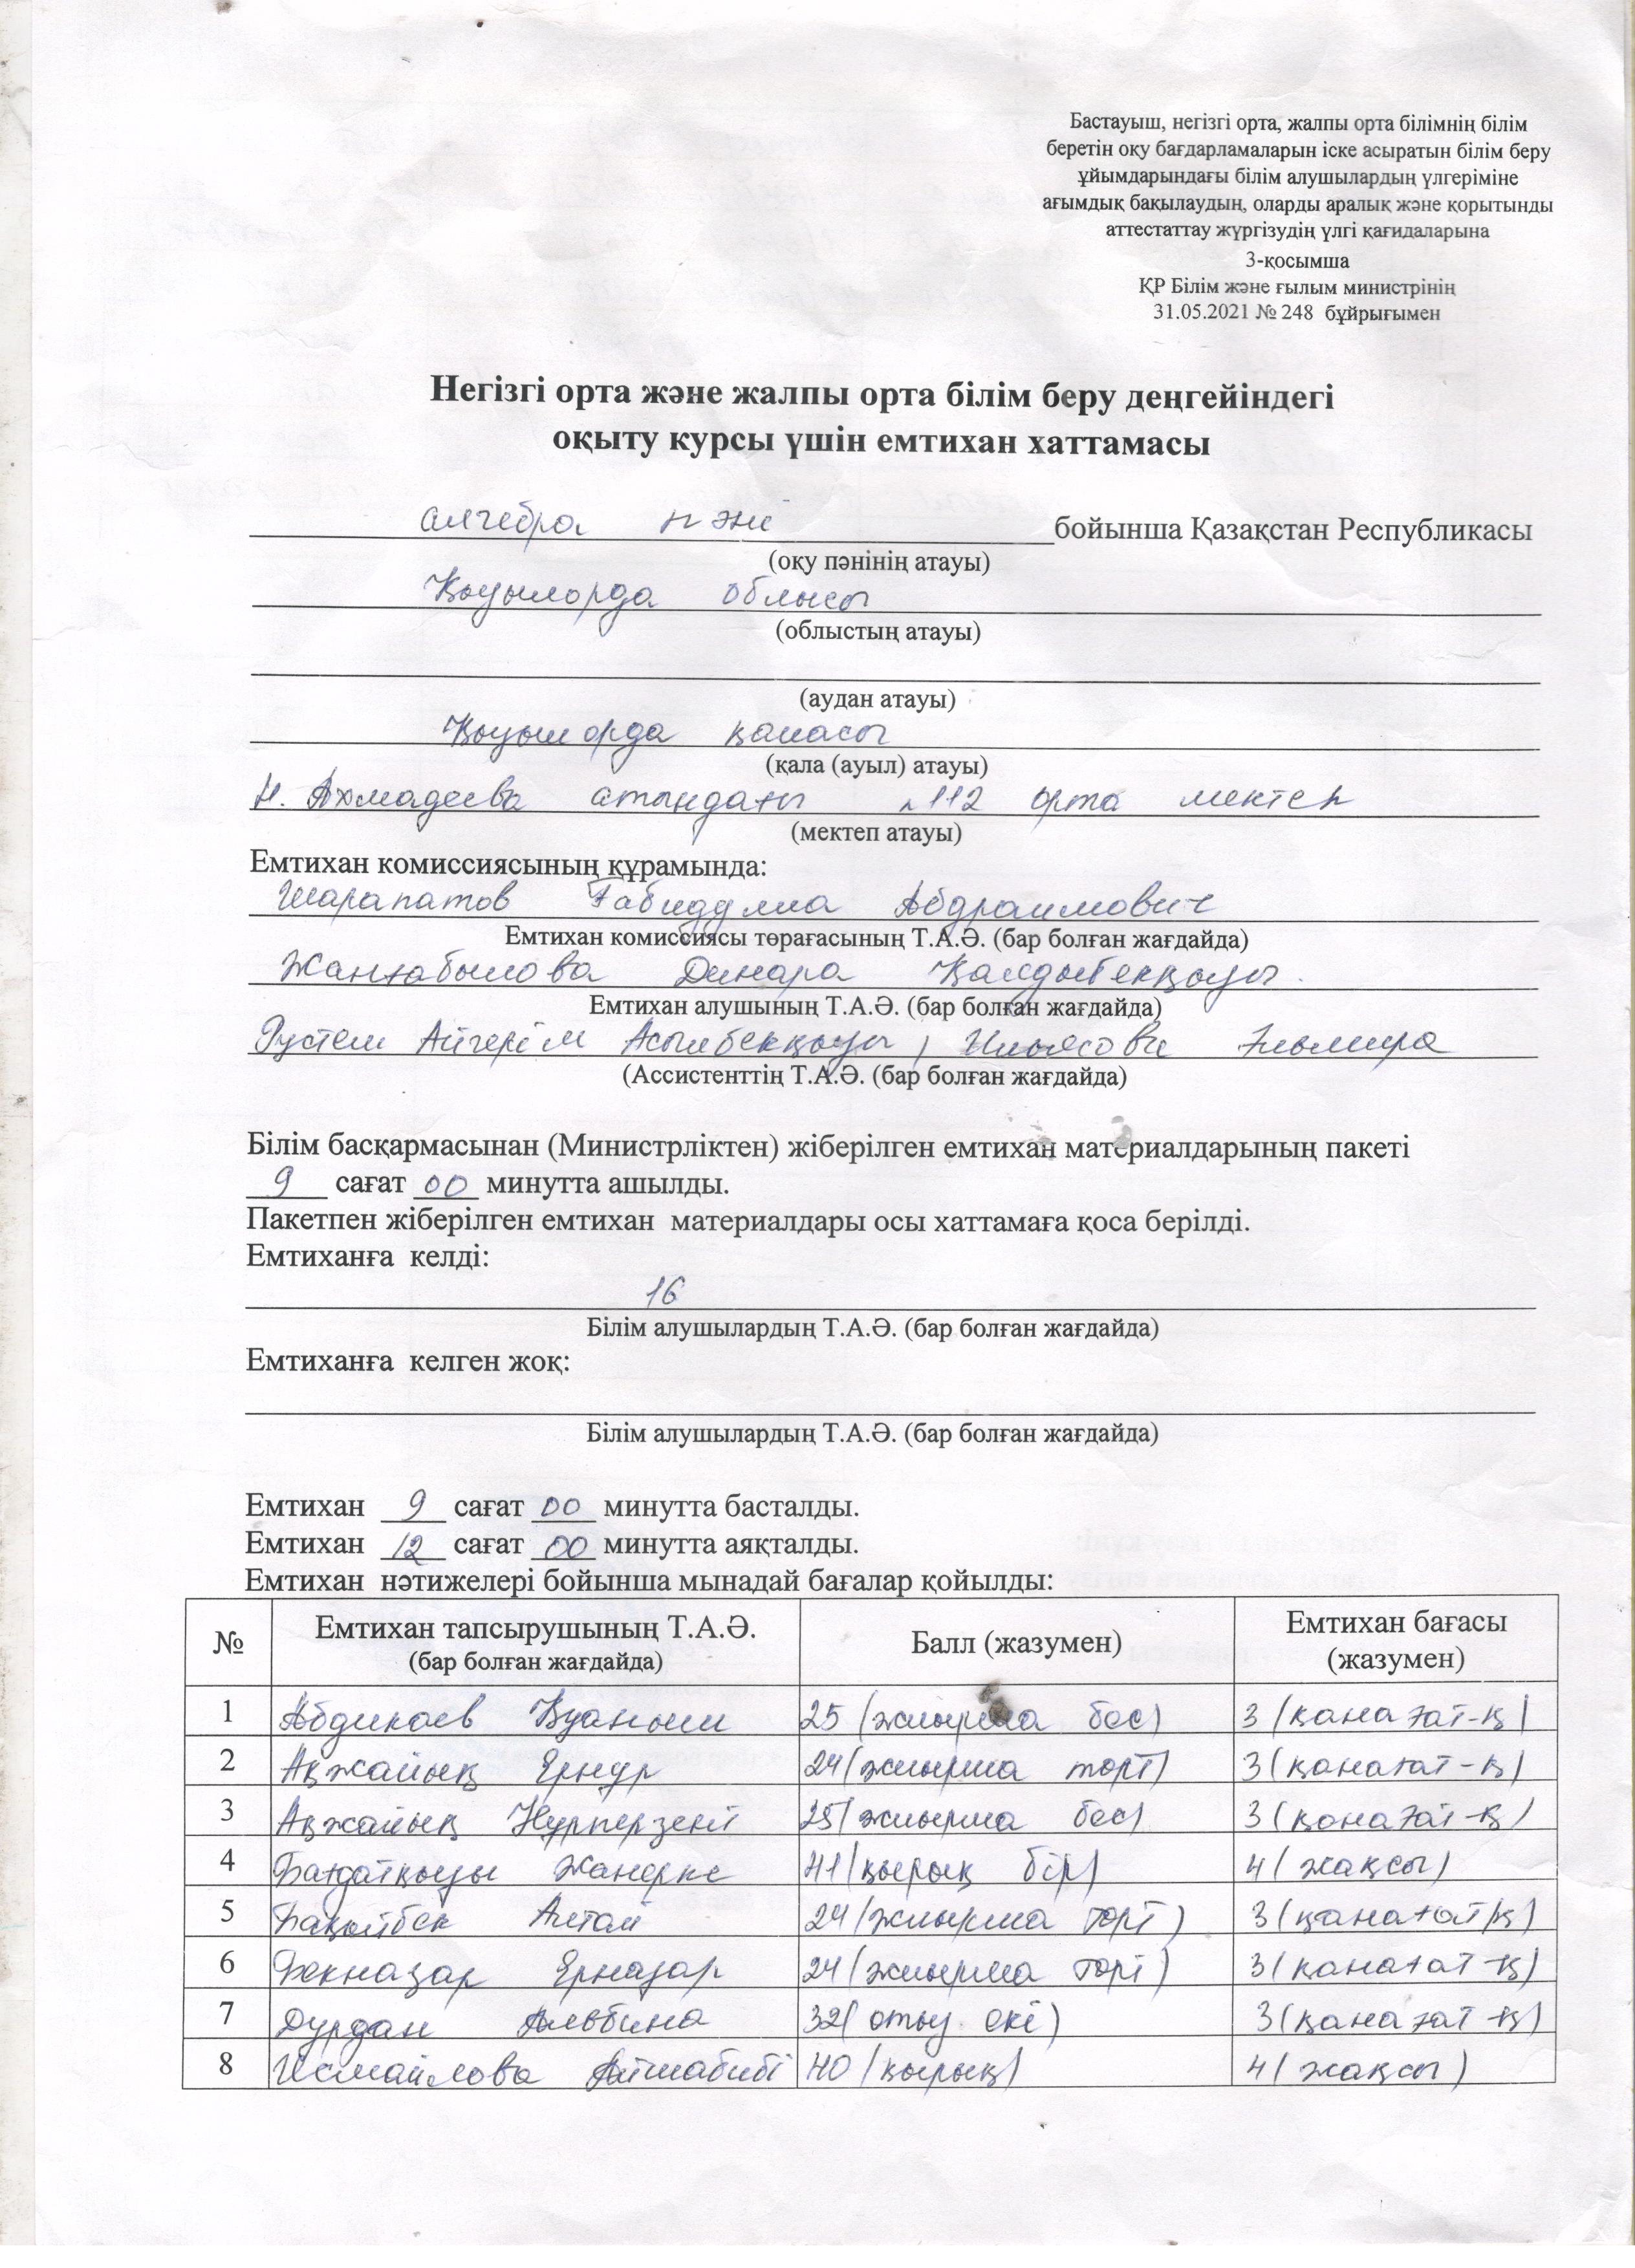 Бастауыш, негізгі орта, жалпы орта білімнің білім
беретін оқу бағдарламаларын іске асыратын білім беру
ұйымдарындағы білім алушылардың үлгеріміне
ағымдық бақылаудың, оларды аралық және қорытынды
аттестаттау жүргізудің үлгі қағидаларына
3-қосымша
ҚР Білім және ғылым министрінің
31.05.2021 № 248 бұйрығымен
Негізгі орта және жалпы орта білім беру деңгейіндегі
оқыту курсы үшін емтихан хаттамасы
алгебра пәні бойынша Қазақстан Республикасы
(оқу пәнінің атауы)
Қызылорда облысы
(облыстың атауы)
(аудан атауы)
Қызылорда қаласы
(қала (ауыл) атауы)
Н. Ахмадеева атындағы №112 орта мектеп
(мектеп атауы)
Емтихан комиссиясының құрамында:
Шарапатов Ғабидулла Абдраимович
Емтихан комиссиясы төрағасының Т.А.Ә. (бар болған жағдайда)
Жанғабылова Динара Қалдыбекқызы.
Емтихан алушының Т.А.Ә. (бар болған жағдайда)
Рүстем Айгерім Асылбекқызы, Ильясова Ғылмира
(Ассистенттің Т.А.Ә. (бар болған жағдайда)
Білім басқармасынан (Министрліктен) жіберілген емтихан материалдарының пакеті
9 сағат 00 минутта ашылды.
Пакетпен жіберілген емтихан материалдары осы хаттамаға қоса берілді.
Емтиханға келді:
16
Білім алушылардың Т.А.Ә. (бар болған жағдайда)
Емтиханға келген жоқ:
Білім алушылардың Т.А.Ә. (бар болған жағдайда)
Емтихан 9 сағат 00 минутта басталды.
Емтихан 12 сағат 00 минутта аяқталды.
Емтихан нәтижелері бойынша мынадай бағалар қойылды:
№ Емтихан тапсырушының Т.А.Ә. (бар болған жағдайда) Балл (жазумен) Емтихан бағасы (жазумен)
1 Абдикаев Қуаныш 25 (жиырма бес) 3 (қанағат-қ)
2 Ақжайық Ернұр 24 (жиырма төрт) 3 (қанағат-қ)
3 Ақжайық Нұрперзент 25 (жиырма бес) 3 (қанағат-қ)
4 Бағдатқызы Жанерке 41 (қырық бір) 4 (жақсы)
5 Бақытбек Алтай 24 (жиырма төрт) 3 (қанағат/қ)
6 Бекназар Ерназар 24 (жиырма төрт) 3 (қанағат-қ)
7 Дурдан Альбина 32 (отыз екі) 3 (қанағат-қ)
8 Исмайлова Айшабибі 40 (қырық) 4 (жақсы)